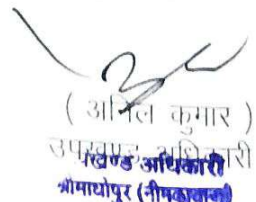 ( अनिल कुमार )
उपखण्ड अधिकारी
उपखण्ड अधिकारी
श्रीमाधोपुर (नीमकाथाना)